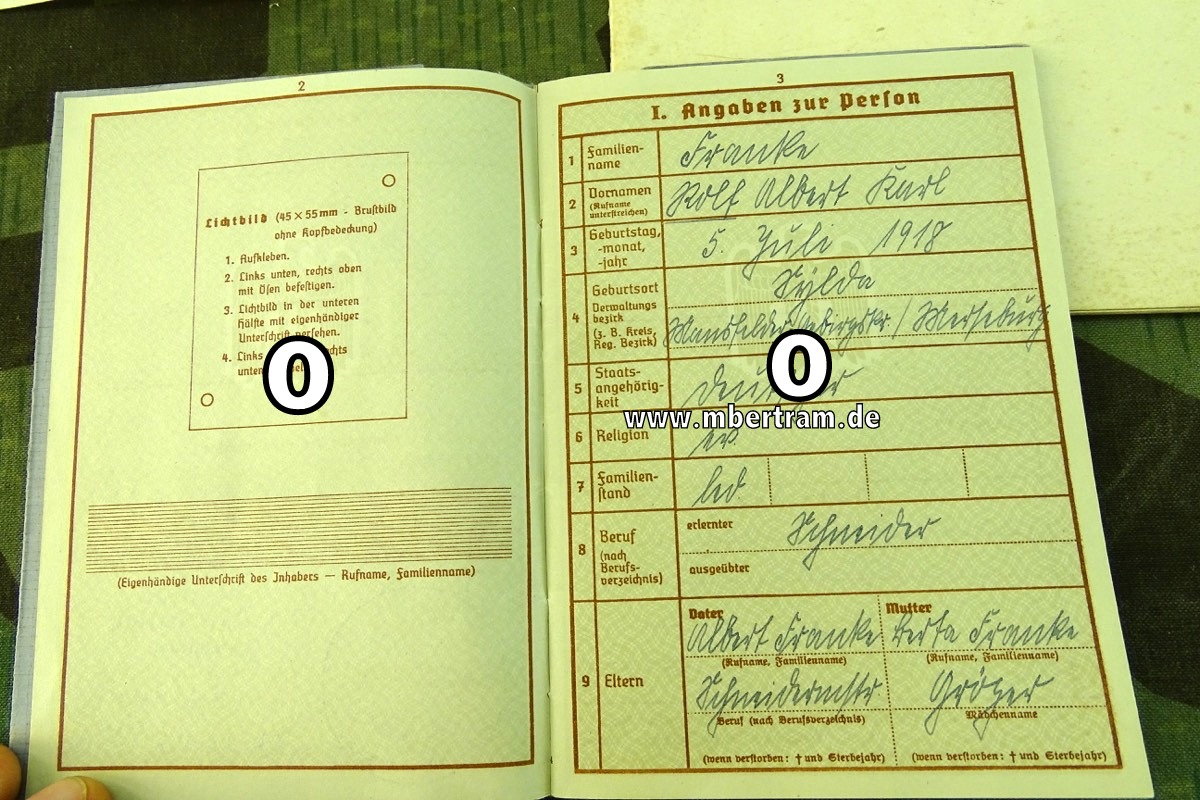 2
Lichtbild (45 × 55 mm - Brustbild
ohne Kopfbedeckung)
1. Aufkleben.
2. Links unten, rechts oben
mit Ösen befestigen.
3. Lichtbild in der unteren
Hälfte mit eigenhändiger
Unterschrift versehen.
4. Links
(Eigenhändige Unterschrift des Inhabers — Rufname, Familienname)
3
I. Angaben zur Person
1 Familien-
name
Franke
2 Vornamen
(Rufname
unterstreichen)
Rolf Albert Karl
3 Geburtstag,
-monat,
-jahr
5. Juli 1918
4 Geburtsort
Sylda
Verwaltungs
bezirk
(z. B. Kreis,
Reg. Bezirk)
Mansfelder Gebirgskr. / Merseburg
5 Staats-
angehörig-
keit
6 Religion
ev.
7 Familien-
stand
led
8 Beruf
(nach
Berufs-
verzeichnis)
erlernter
Schneider
ausgeübter
9 Eltern
Vater
Mutter
Albert Franke
Berta Franke
(Rufname, Familienname)
(Rufname, Familienname)
Schneidermstr
Gröger
Beruf (nach Berufsverzeichnis)
Mädchenname
(wenn verstorben: † und Sterbejahr)
(wenn verstorben: † und Sterbejahr)
0
0
www.mbertram.de